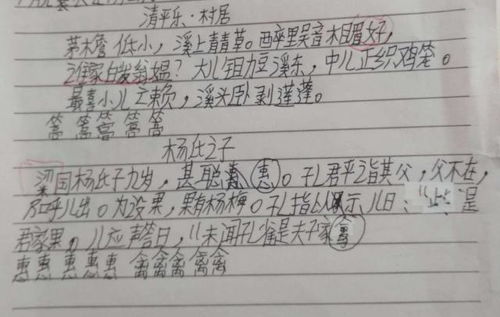 清平乐·村居
茅檐低小，溪上青青草。醉里吴音相眉好，
谁家白发翁媪？大儿锄豆溪东，中儿正织鸡笼。
最喜小儿亡赖，溪头卧剥莲蓬。
篙篙篙篙篙
杨氏之子
梁国杨氏子九岁，甚聪 惠。孔君平诣其父，父不在，
乃呼儿出。为设果，果有杨梅。孔指以示儿曰："此 是
君家果。儿应声答曰，"未闻孔雀是夫子家禽
惠惠惠惠惠 禽禽禽禽禽